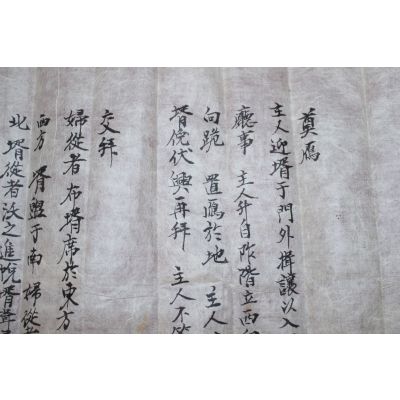 奠鴈
主人迎壻于門外揖讓以入
廳事 主人升自阼階立西
向跪 置鴈於地 主人
壻俛伏興再拜 主人不
交拜
婦從者布壻席於東方
西方 壻盥于南 婦從
北 壻從者沃之進帨壻